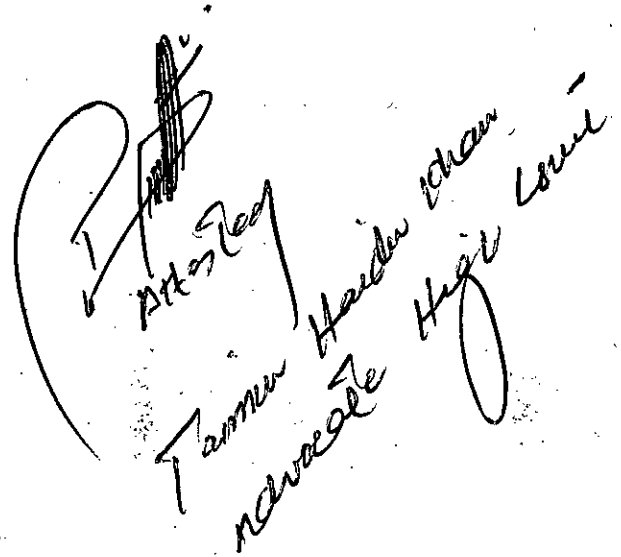 Attested
Haider Khan
Advocate High Court